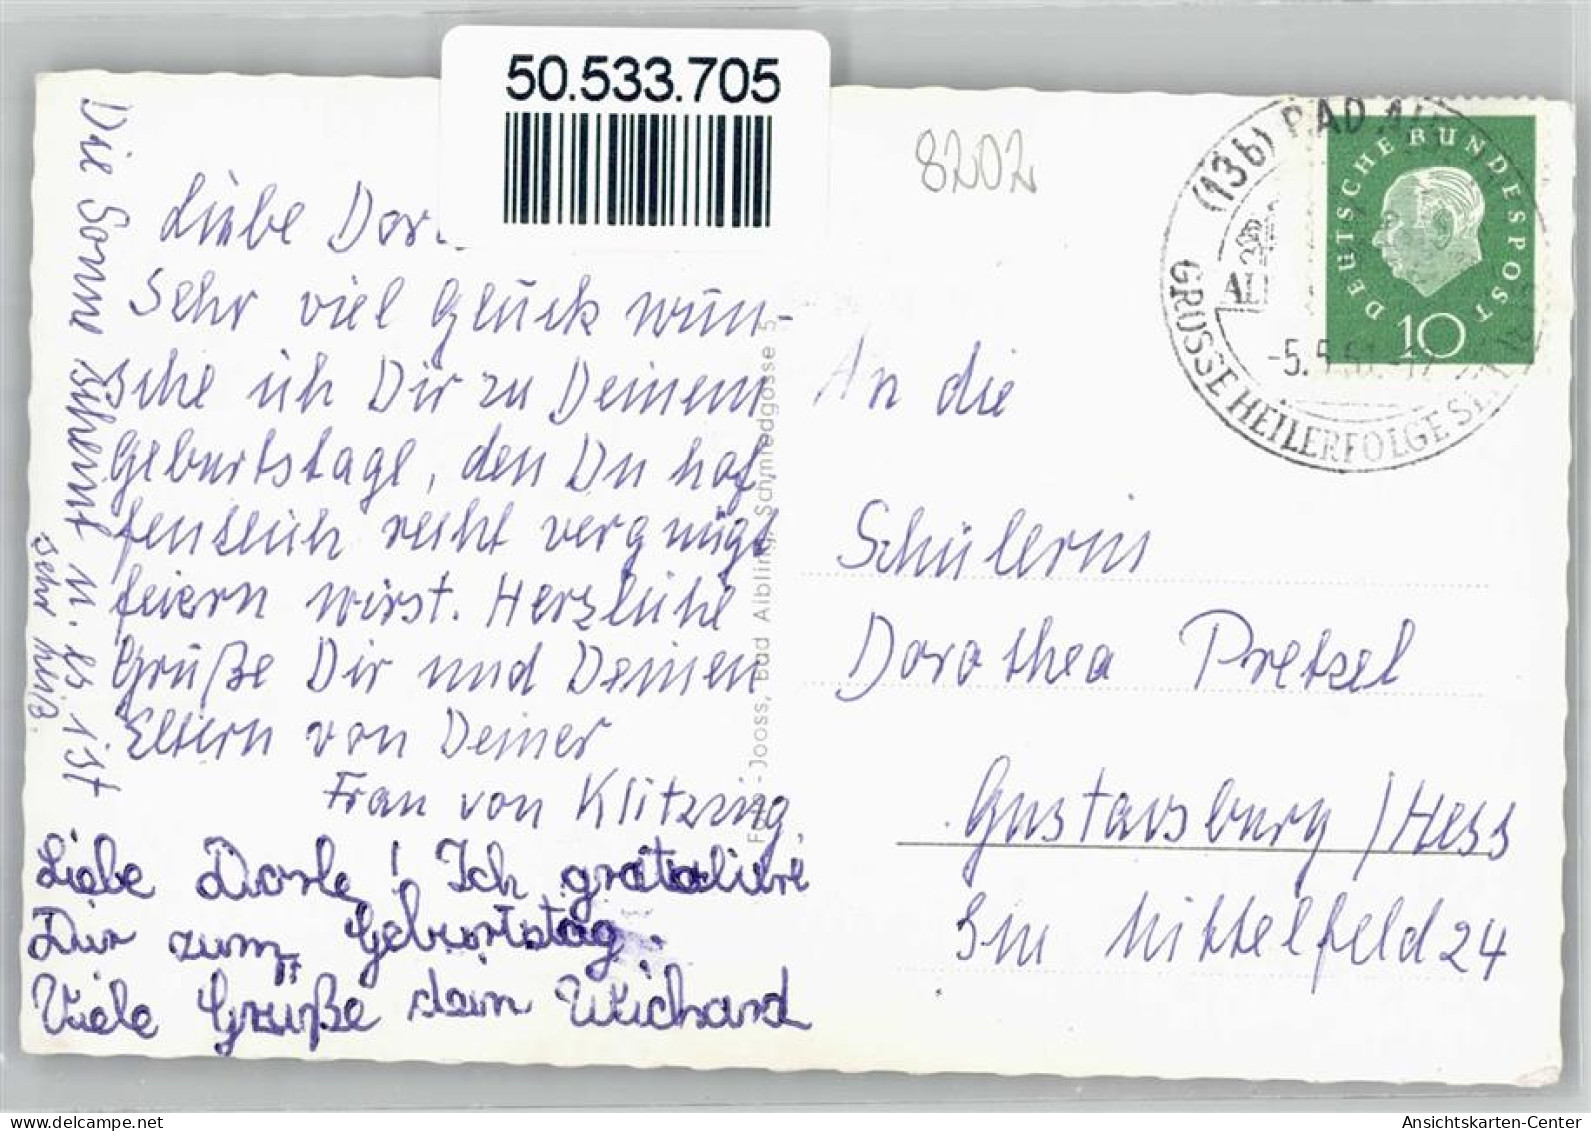 50.533.705
8202
(13b) BAD AI
GRÜSSE HEILERFOLGE
DEUTSCHE BUNDESPOST
10
Liebe Dor
Sehr viel Glück wün-
sche ich Dir zu Deinem
Geburtstage, den Du hof
fentlich recht vergnügt
feiern wirst. Herzliche
Grüße Dir und Deinen
Eltern von Deiner
Frau von Klitzing
Liebe Dorle! Ich gratuliere
Dir zum Geburtstag.
Viele Grüße dein Wichard
Die Sonne scheint u. es ist
sehr heiß.
Foto-Jooss, Bad Aibling, Schmiedgasse 5
An die
Schülerin
Dorothea Pretzel
Gustavsburg/Hess
Im Mittelfeld 24
delcampe.net
Ansichtskarten-Center